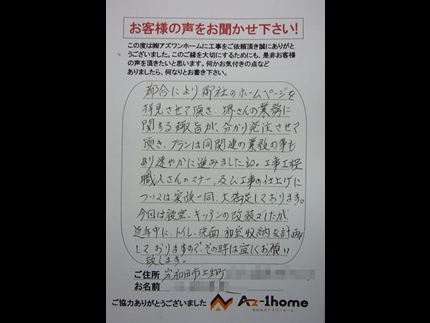 お客様の声をお聞かせ下さい!
この度は㈱アズワンホームに工事をご依頼頂き誠にありがと
うございました。このご縁を大切にするためにも、是非お客様
の声を頂きたいと思います。何かお気付きの点など
ありましたら、何なりとお書き下さい。
都合により御社のホームページを
拝見させて頂き、堺さんの業務に
関する趣旨が、分かり発注させて
頂き、プランは同関連の業務の事も
あり速やかに進みましたね。工事工程
職人さんのマナー、及び工事の仕上げに
ついては家族一同、大満足しております。
今回は浴室、キッチンの改装でしたが
近年中に、トイレ、洗面、和室収納を計画
しておりますので、その時は宜しくお願い
致します。
ご住所 岸和田市上町
お名前
ご協力ありがとうございました
Az-1home